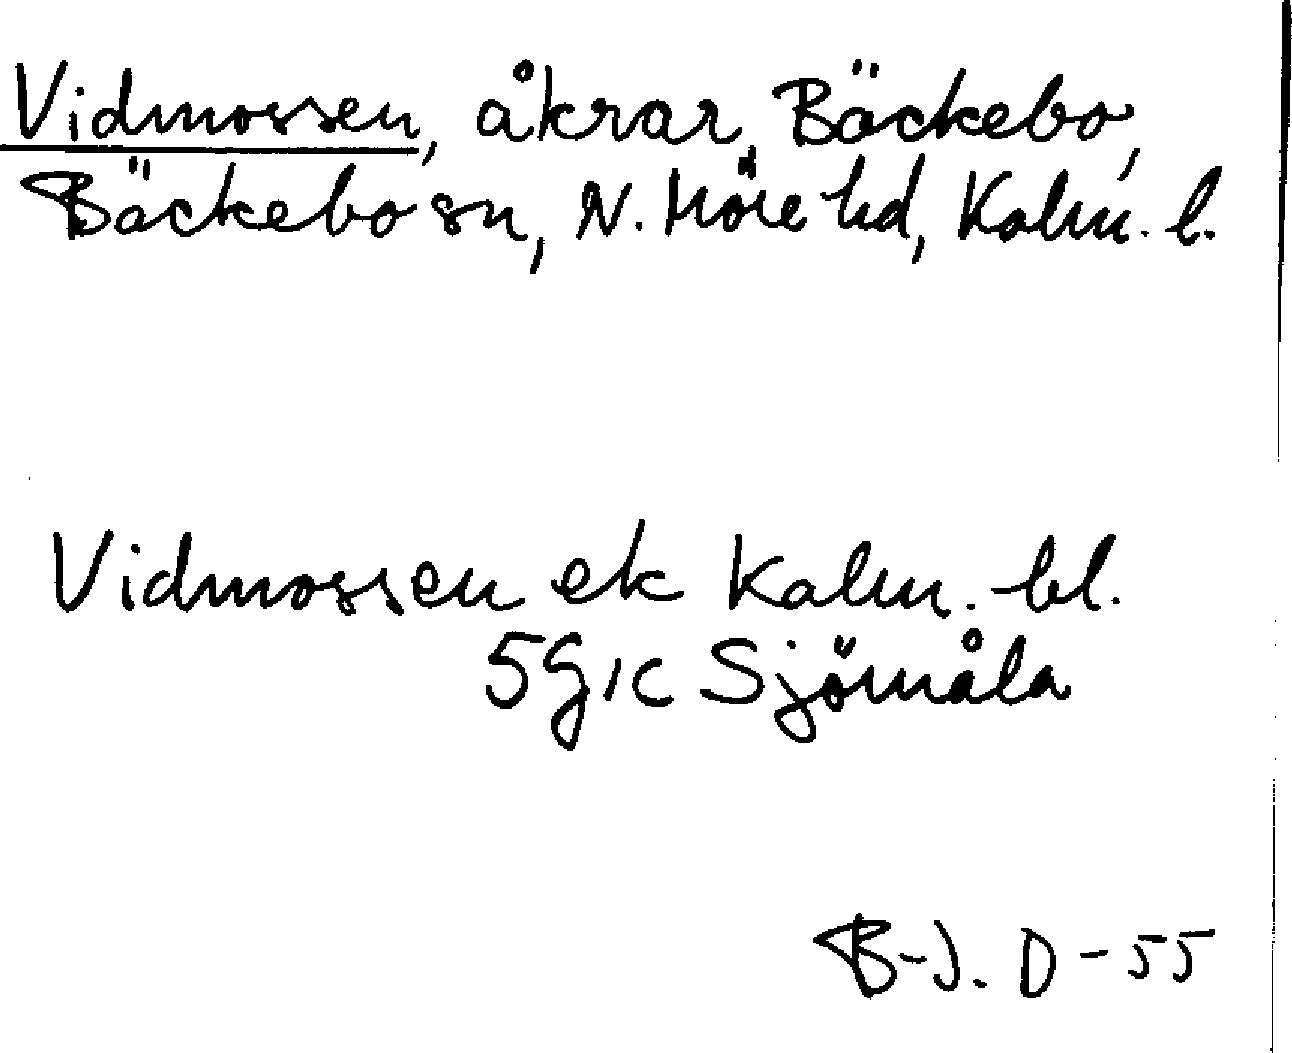 Vidmossen, åkrar, Bäckebo,
Bäckebo sn, N. Möre hd, Kalm. l.
Vidmossen ek Kalm. bl.
5G1c Sjömåla
B-J. D-55